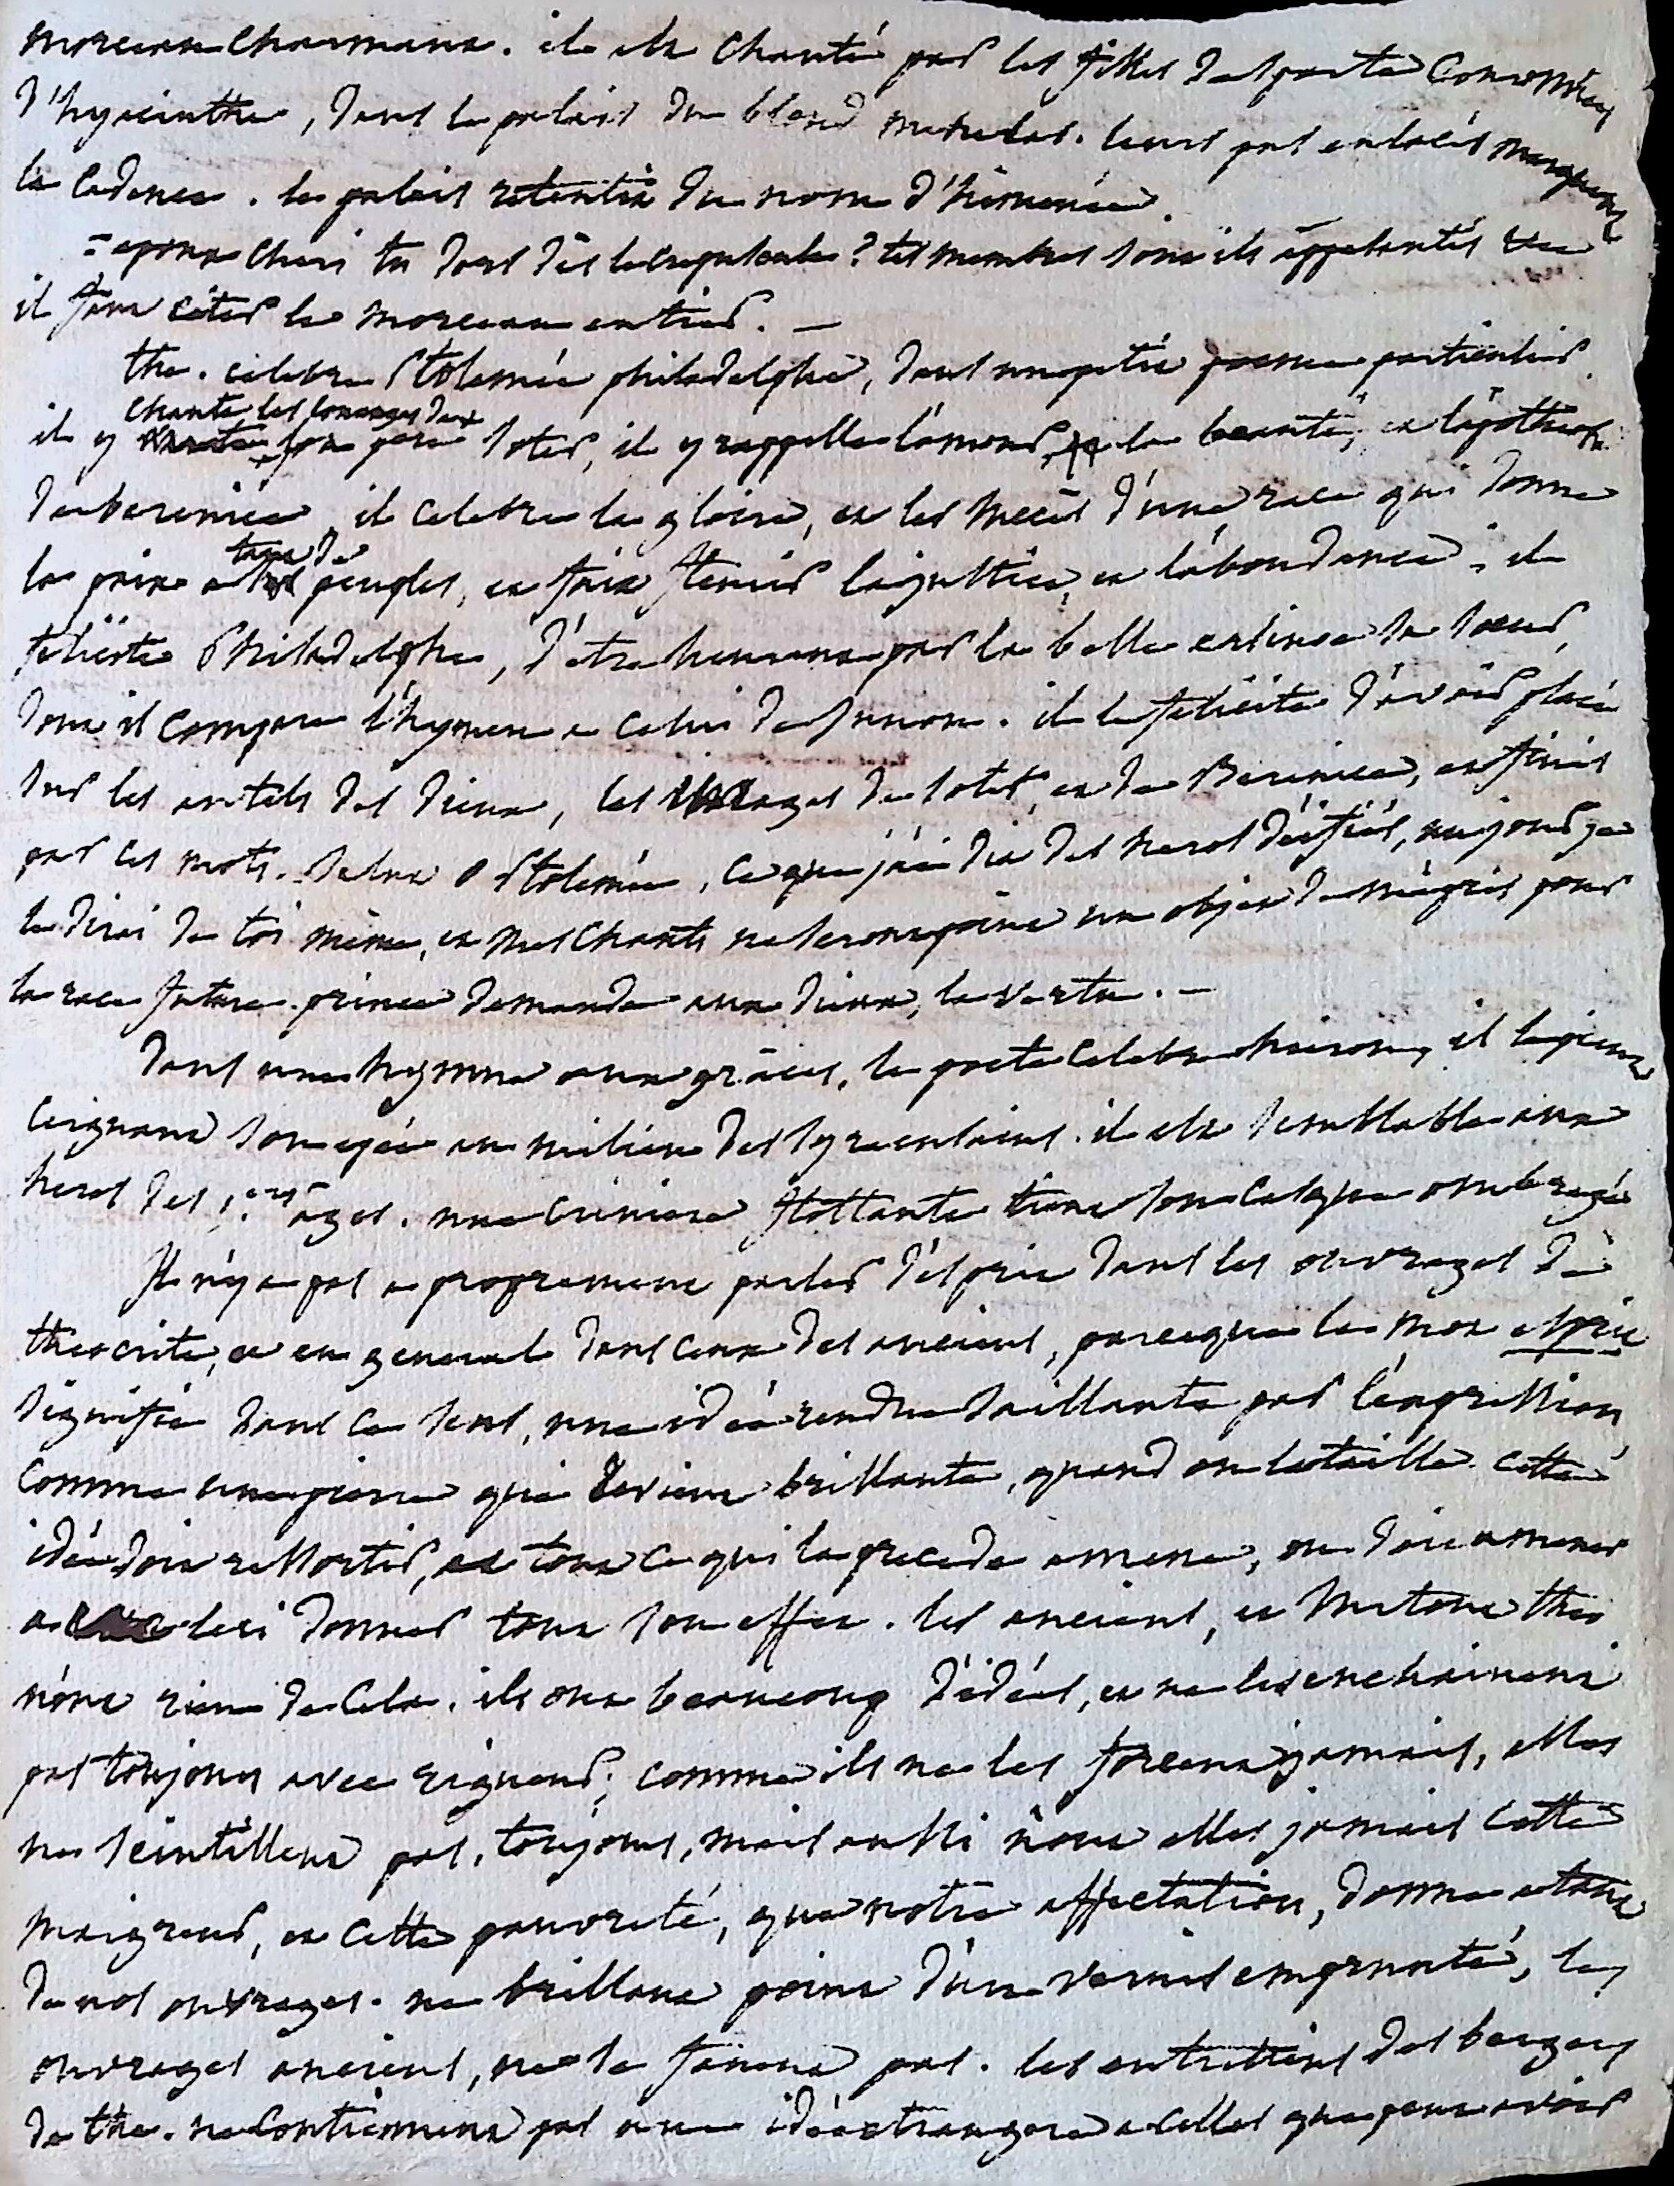 morceau charmant. il est chanté par les filles de sparte couronnées
d'hyacinthe, dans le palais du blond menelas. leurs pas enlacés marquent
la cadence. le palais retentit du nom d'himenée.
= epoux cheri tu dors dès le crepuscule? tes membres sont ils appesantis &c
il faut citer le morceau entier. —
the. celebre Ptolemée philadelphe, dans un petit poeme particulier.
chante les louanges de
il y son pere soter, il y rappelle l'amour, la beauté, et l'apotheose
de berenice, il celebre la gloire, et les succès d'une race qui donne
tant de
la paix a peuples, et fait fleurir la justice, et l'abondance; il
felicite Philadelphe, d'etre heureux par la belle arsinoe sa soeur,
dont il compare l'hymen a celui de Junon. il le felicite d'avoir placé
sur les autels des dieux, les images de soter, et de Berenice, et finit
par ces mots. Salut o Ptolemée, ce que j'ai dit des heros déifiés, un jour je
le dirai de toi même, et mes chants ne seront point un objet de mépris pour
la race future. prince demande aux dieux, la vertu. —
dans une hymne aux grâces, le poete celebre hieron, il le peint
ceignant son epée au milieu des syracusains. il est semblable aux
heros des 1.ers ages. une criniere flottante tient son casque ombragé
Il n'y a pas a proprement parler d'esprit dans les ouvrages de
theocrite, et en general dans ceux des anciens, parceque le mot esprit
signifie dans ce sens, une idée rendue saillante par l'expression,
comme une pierre qui devient brillante, quand on la taille. cette
idée doit ressortir, et tout ce qui la precede amene, ou doit amener
a lui donner tout son effet. les anciens, et surtout theo
n'ont rien de cela. ils ont beaucoup d'idées, et ne les enchainent
pas toujours avec rigueur; comme ils ne les forcent jamais, elles
ne scintillent pas, toujours, mais aussi n'ont elles jamais cette
maigreur, et cette pauvreté, que notre affectation, donne a tant
de nos ouvrages. ne brillant point d'un vernis emprunté, les
ouvrages anciens, ne se fanent pas. les entretiens des bergers
de the. ne contiennent pas une idée etrangere a celles que peut avoir